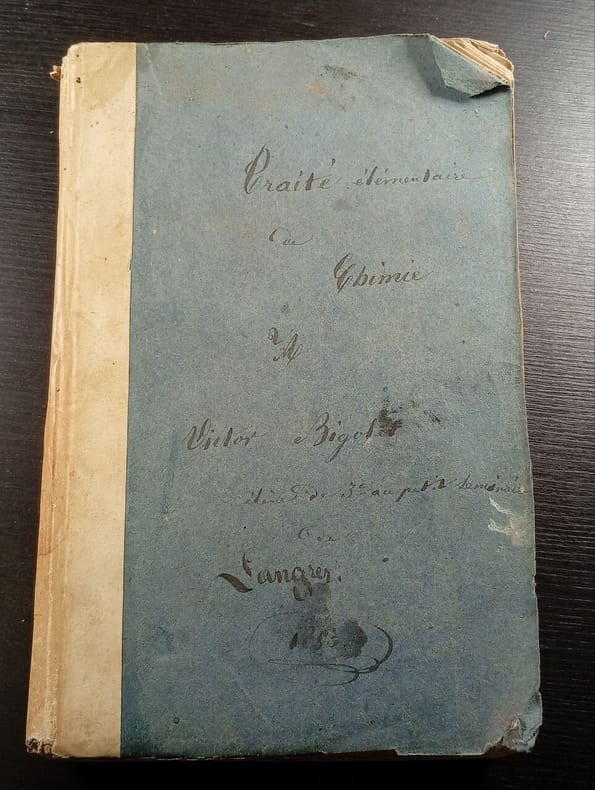 Traité élémentaire
de
Chimie
A
Victor Bigolet
élève de 3e au petit Séminaire
de
Langres.